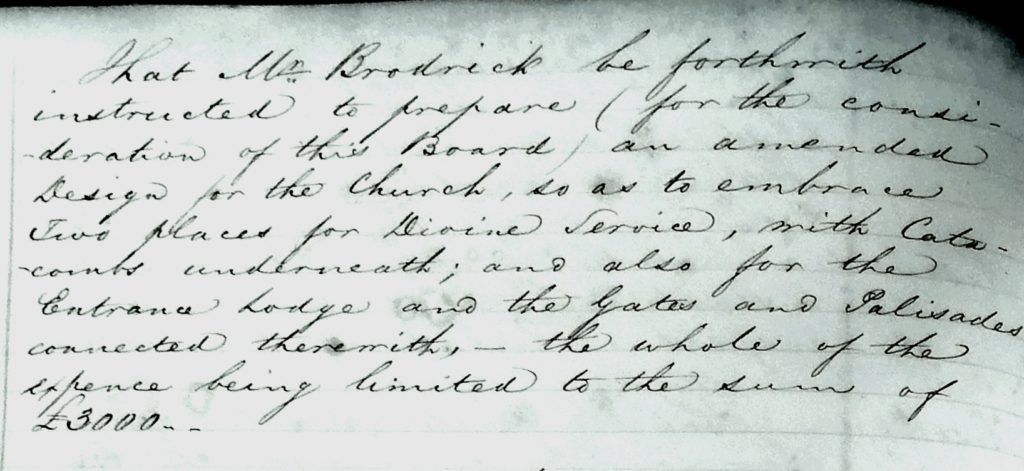 That Mr. Brodrick be forthwith
instructed to prepare (for the consi-
-deration of this Board) an amended
Design for the Church, so as to embrace
Two places for Divine Service, with Cata-
-combs underneath; and also for the
Entrance Lodge and the Gates and Palisades
connected therewith, — the whole of the
expence being limited to the sum of
£3000--